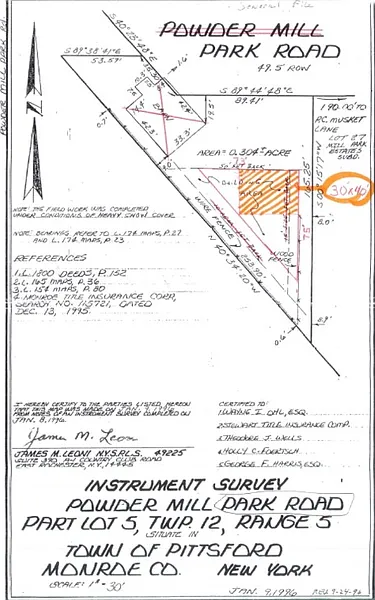 General File
POWDER MILL
PARK ROAD
49.5 ROW
POWDER MILL PARK RD.
S 40°28'48"E
S 89°38'41"E
53.57'
S 89°44'48"E
89.41'
190.70' TO
R.C. MUSKET
LANE
LOT 27
MILL PARK
ESTATES
SUBD.
1.6'
19.5'
42.4
42.3
33.3'
AREA = 0.304± ACRE
165.25
S 00°15'17"W
30x40
75'
6.0'
WIRE FENCE
WOOD
FENCE
253.90'
N 40°34'20"W
8.9'
0.6'
NOTE: THE FIELD WORK WAS COMPLETED
UNDER CONDITIONS OF HEAVY SNOW COVER.
NOTE: BEARINGS REFER TO L.174 MAPS, P.27
AND L.174 MAPS, P.23
REFERENCES
1. L.1800 DEEDS, P.152
2. L.165 MAPS, P.36
3. L.154 MAPS, P.80
4. MONROE TITLE INSURANCE CORP.,
SEARCH NO. 115721, DATED
DEC. 13, 1995.
I HEREBY CERTIFY TO THE PARTIES LISTED HEREON
THAT THIS MAP WAS MADE ON JAN. 9, 1996
FROM NOTES OF AN INSTRUMENT SURVEY COMPLETED ON
JAN. 8, 1996
James M. Leoni
JAMES M. LEONI N.Y.S.P.L.S. 49225
EAST ROCHESTER, N.Y. 14445
CERTIFIED TO:
1. WAYNE I. OHL, ESQ.
2. STEWART TITLE INSURANCE COMP.
3. THEODORE J. WELLS
4. HOLLY C. FOERTSCH
5. GEORGE F. HARRIS, ESQ.
INSTRUMENT SURVEY
POWDER MILL PARK ROAD
PART LOT 5, TWP. 12, RANGE 5
SITUATE IN
TOWN OF PITTSFORD
MONROE CO. NEW YORK
SCALE: 1" = 30'
JAN. 9, 1996
REV. 9-24-96